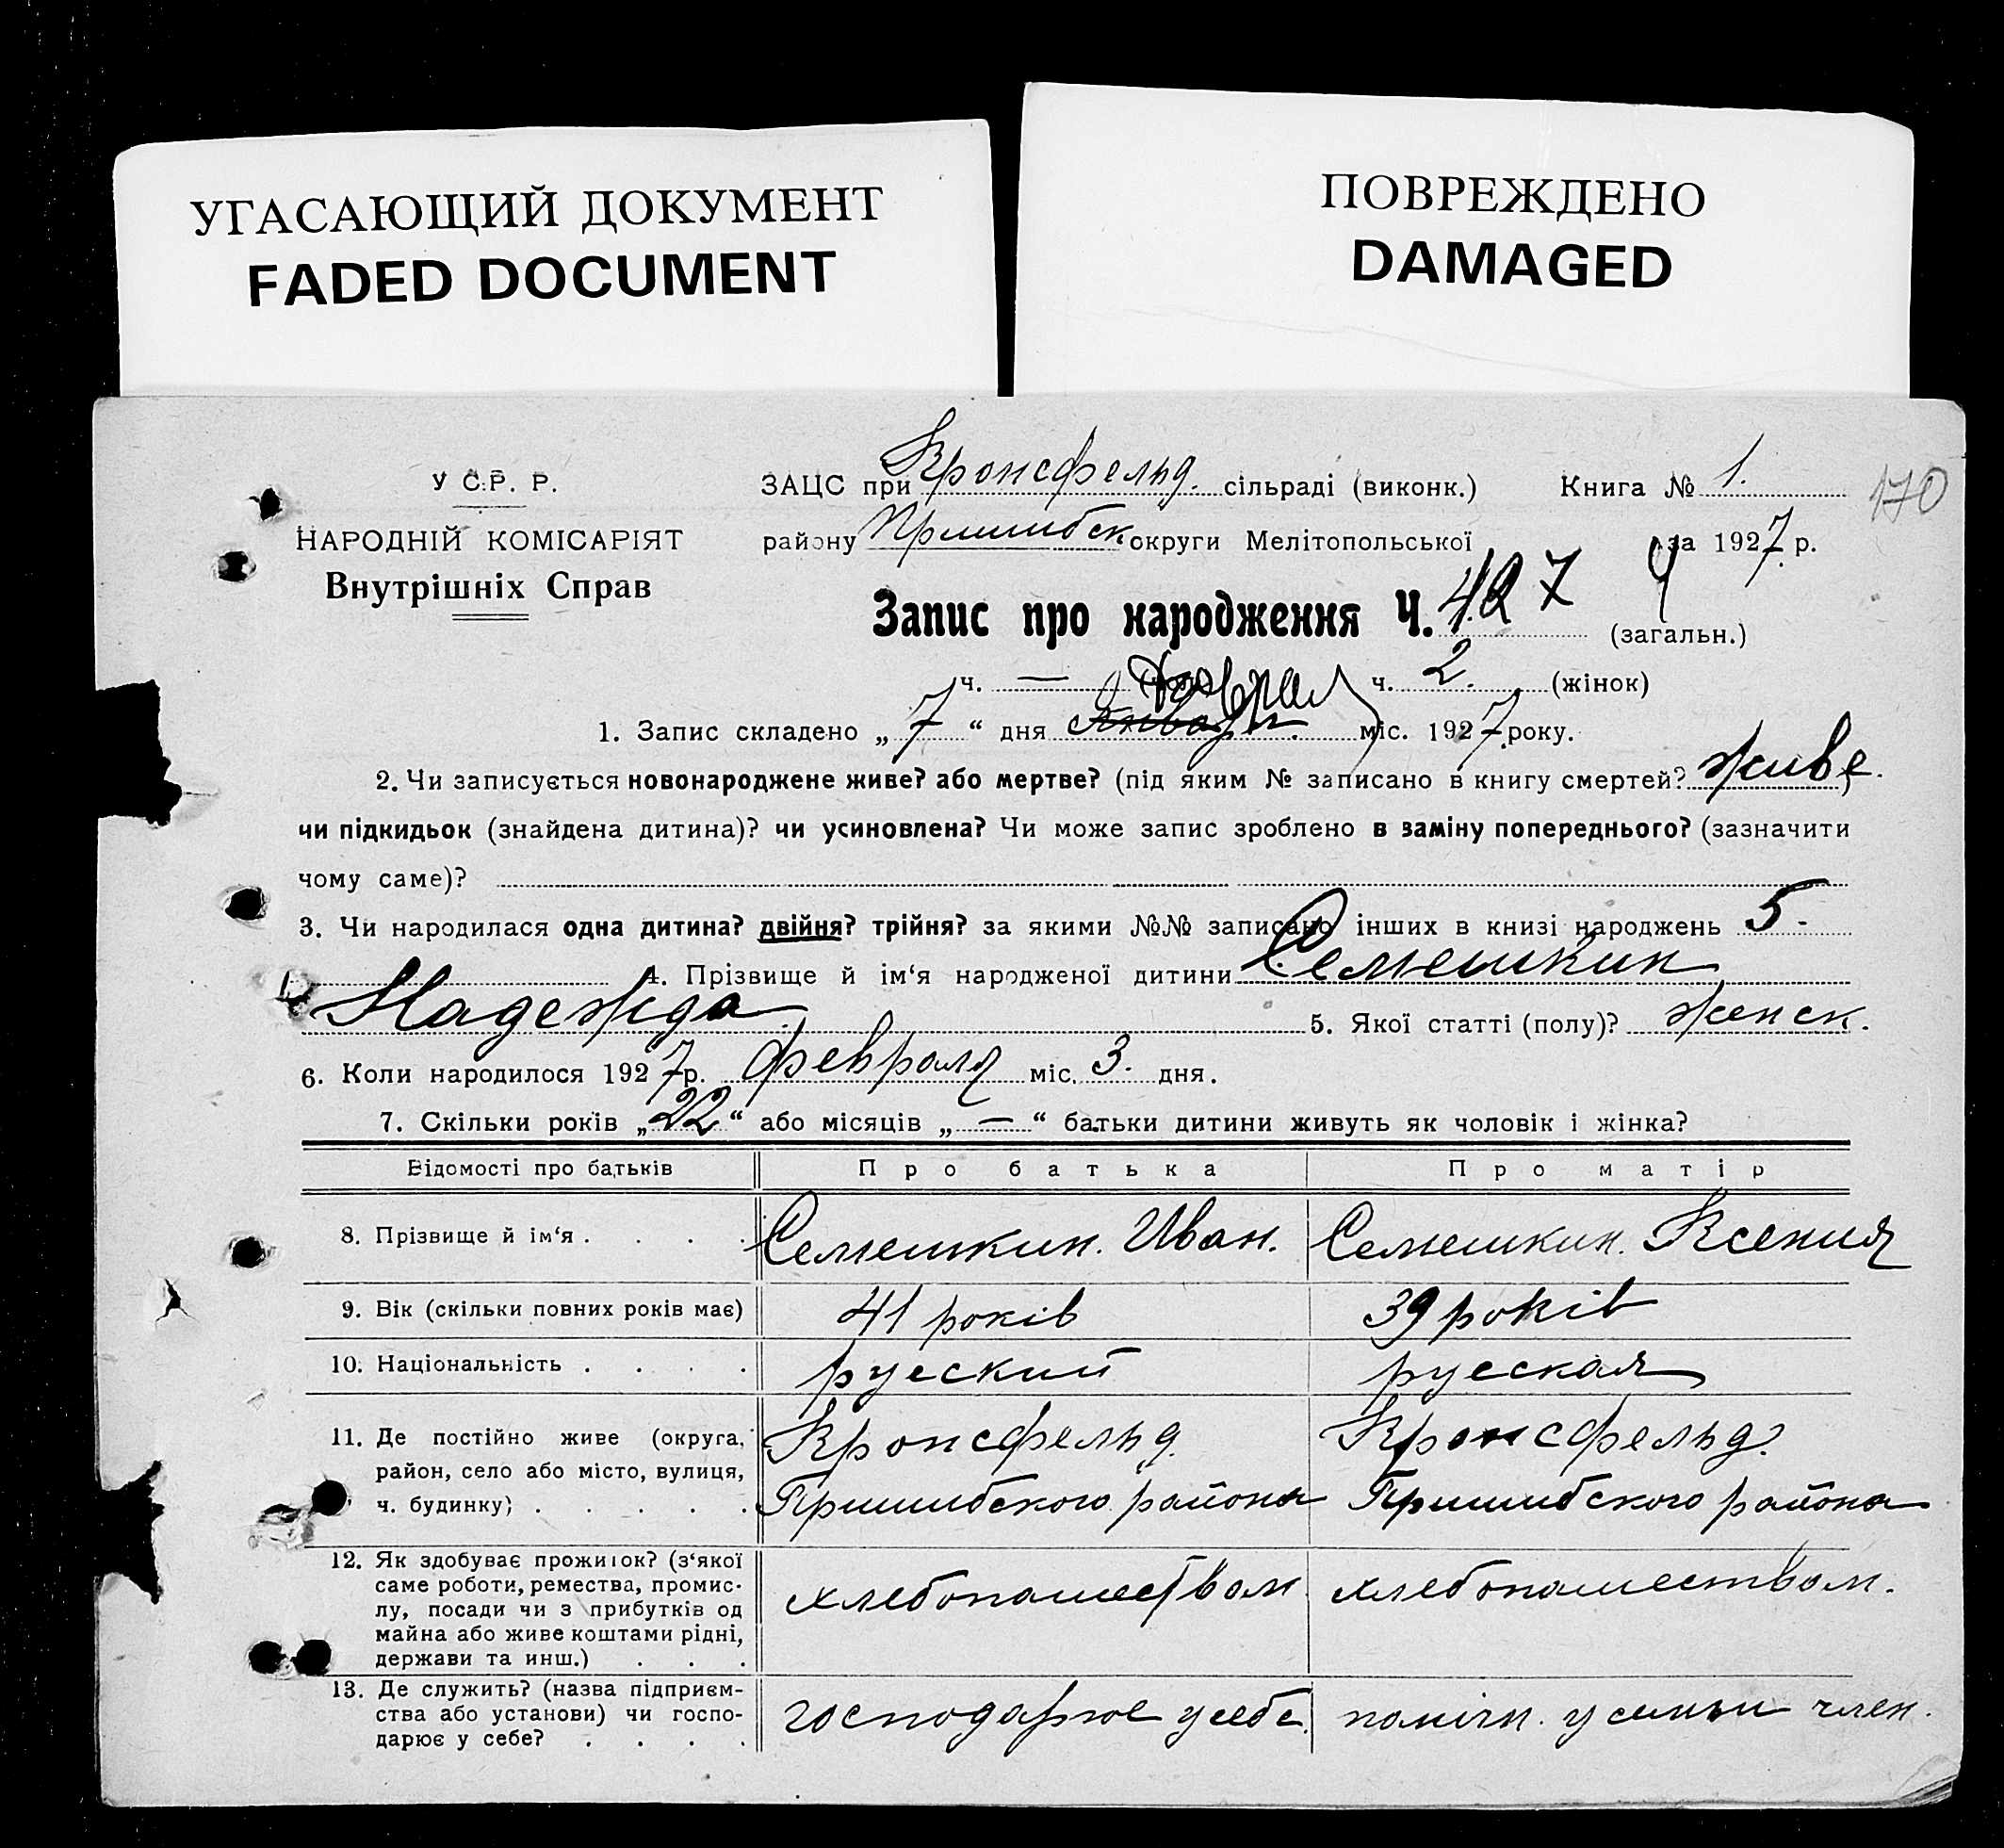 УГАСАЮЩИЙ ДОКУМЕНТ
FADED DOCUMENT
ПОВРЕЖДЕНО
DAMAGED
У С.Р. Р.
НАРОДНІЙ КОМІСАРІЯТ
Внутрішніх Справ
ЗАЦС при Кронсфельд. сільраді (виконк.) Книга № 1. 170
району Пришибск округи Мелітопольської за 1927 р.
Запис про народження Ч. 427 4 (загальн.)
ч. — ч. 2. (жінок)
Феврал
1. Запис складено „ 7 “ дня Января. міс. 1927 року.
2. Чи записується новонароджене живе? або мертве? (під яким № записано в книгу смертей? живе.)
чи підкидьок (знайдена дитина)? чи усиновлена? Чи може запис зроблено в заміну попереднього? (зазначити
чому саме)?
3. Чи народилася одна дитина? двійня? трійня? за якими №№ записано інших в книзі народжень 5-
4. Прізвище й ім‘я народженої дитини Семешкин
Надежда 5. Якої статті (полу)? женск.
6. Коли народилося 1927 р. февраля міс. 3. дня.
7. Скільки років „22“ або місяців „—“ батьки дитини живуть як чоловік і жінка?
Відомості про батьків Про батька Про матір
8. Прізвище й ім‘я . . . . Семешкин. Иван. Семешкин. Ксения
9. Вік (скільки повних років має) 41 років 39 років
10. Національність . . . . русский русская
11. Де постійно живе (округа, Кронсфельд. Кронсфельд.
район, село або місто, вулиця,
ч. будинку) . . . . . Пришибского района Пришибского района
12. Як здобуває прожиток? (з‘якої
саме роботи, ремества, промис-
лу, посади чи з прибутків од хлебопашеством хлебопашеством.
майна або живе коштами рідні,
держави та инш.) . . .
13. Де служить? (назва підприєм-
ства або установи) чи госпо- господарює у себе. поміч. у семьи член.
дарює у себе? . . . .